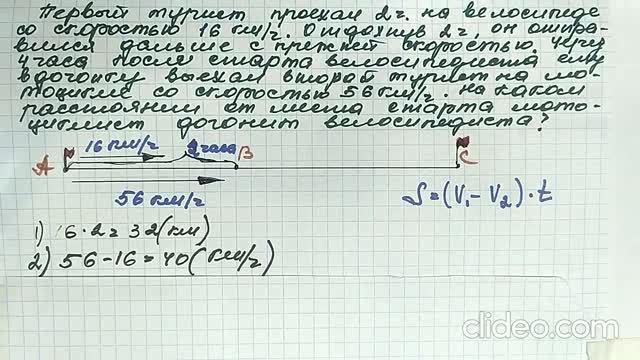 Первый турист проехал 2 ч. на велосипеде
со скоростью 16 км/ч. Отдохнув 2 ч, он отпра-
вился дальше с прежней скоростью. Через
4 часа после старта велосипедиста ему
вдогонку выехал второй турист на мо-
тоцикле со скоростью 56 км/ч. На каком
расстоянии от места старта мото-
циклист догонит велосипедиста?
16 км/ч 2 часа B C
A
56 км/ч
S=(V₁-V₂)·t
1) 16·2=32(км)
2) 56-16=40(км/ч)
clideo.com